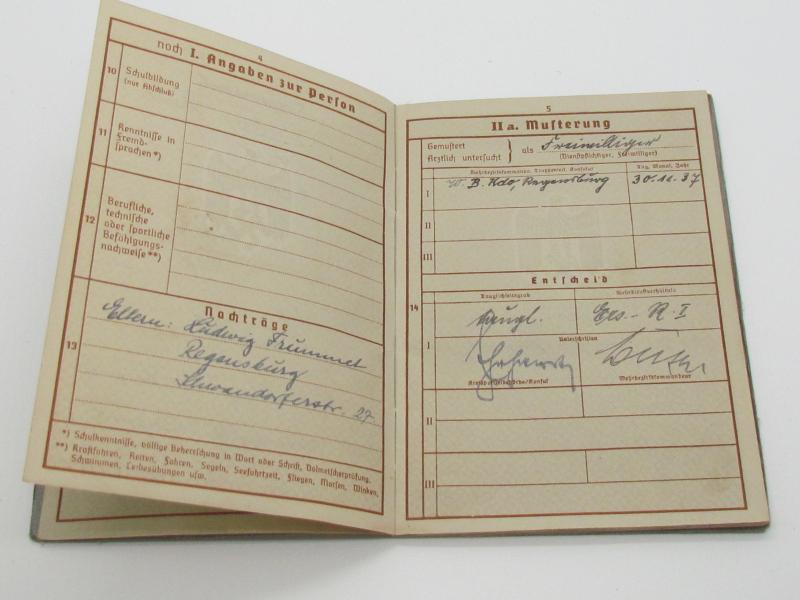 4
noch I. Angaben zur Person
10 Schulbildung
(nur Abschluß)
11 Kenntnisse in
Fremd-
sprachen*)
12 Berufliche,
technische
oder sportliche
Befähigungs-
nachweise**)
Nachträge
13 Eltern: Ludwig Frummet
Regensburg
Schwandorferstr. 27.
*) Schulkenntnisse, völlige Beherrschung in Wort oder Schrift, Dolmetscherprüfung.
**) Kraftfahren, Reiten, Fahren, Segeln, Seefahrtzeit, Fliegen, Morsen, Winken,
Schwimmen, Leibesübungen usw.
5
IIa. Musterung
Gemustert
Ärztlich untersucht } als Freiwilliger
(Dienstpflichtiger, Freiwilliger)
Tag, Monat, Jahr
I W. B. Kdo, Regensburg 30.11.37
II
III
Entscheid
14 Tauglichkeitsgrad Wehrdienstverhältnis
taugl. Ers.-R. I
I Unterschriften
Wehrbezirkskommandeur
II
III